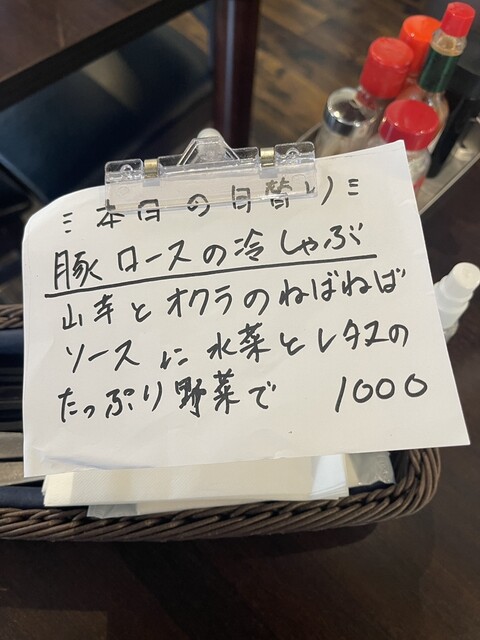 本日の日替り
豚ロースの冷しゃぶ
山芋とオクラのねばねば
ソースに水菜とレタスの
たっぷり野菜で 1000